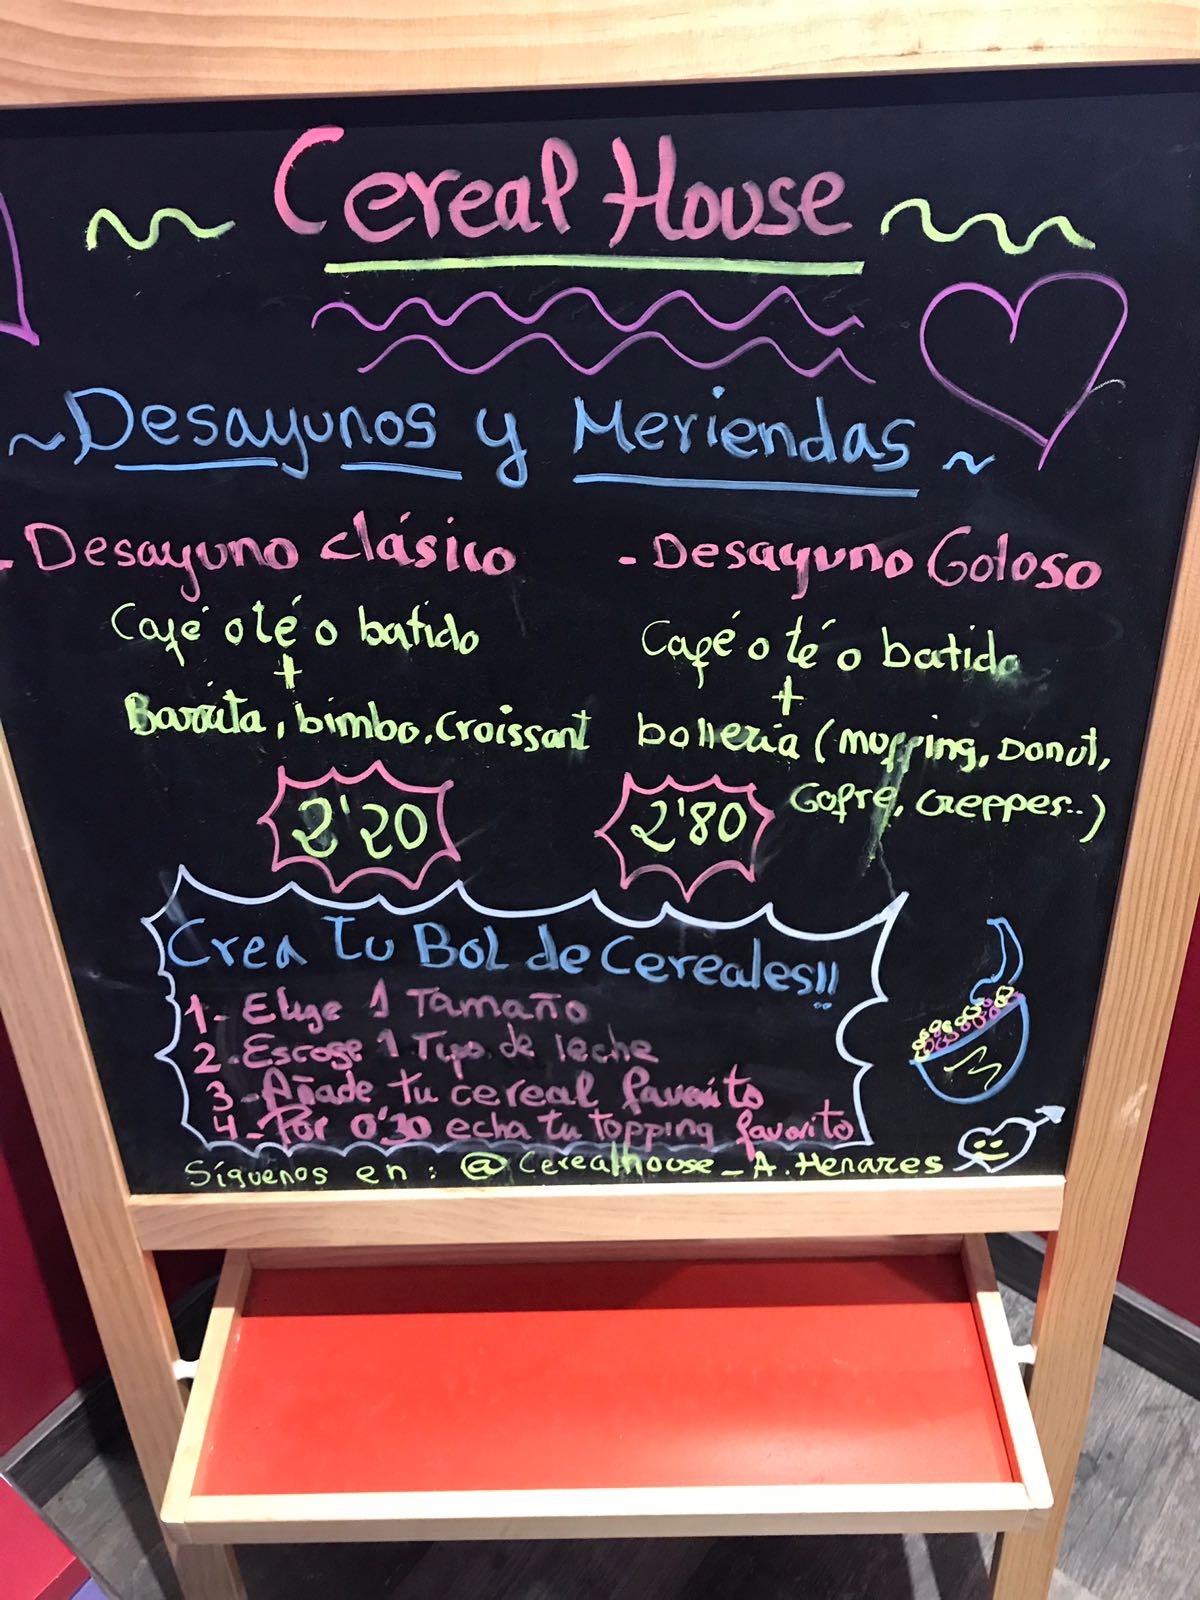 Cereal House
~Desayunos y Meriendas~
- Desayuno clásico
Café o té o batido
+
Barrita, bimbo, croissant
2'20
- Desayuno Goloso
Café o té o batido
+
bolleria (muffing, Donut,
Gofre, creppes..)
2'80
Crea tu Bol de Cereales!!
1- Elige 1 Tamaño
2-Escoge 1 Tipo de leche
3-Añade tu cereal favorito
4-Por 0'30 echa tu topping favorito
Síguenos en: @Cerealhouse_A.Henares